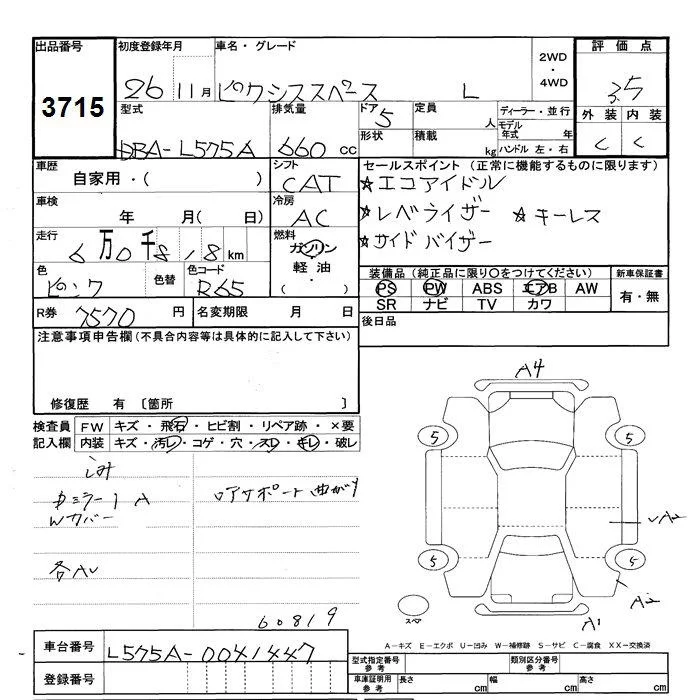 出品番号 初度登録年月 車名・グレード 2WD・4WD 評価点
3715 26 11月 ピクシススペース L 3.5
型式 排気量 ドア 定員 ディーラー・並行 外装 内装
DBA-L575A 660 cc 5 人 モデル年式 年 C C
形状 積載 kg ハンドル 左・右
車歴 シフト セールスポイント (正常に機能するものに限ります)
自家用・( ) CAT ☆エコアイドル
車検 冷房 ☆レベライザー ☆キーレス
年 月( 日) AC ☆サイドバイザー
走行 6万0千818km 燃料 ガソリン・軽油・( )
色 色替 色コード 装備品 (純正品に限り○をつけてください) 新車保証書
ピンク R65 PS PW ABS エアB AW 有・無
SR ナビ TV カワ
R券 7570 円 名変期限 月 日 後日品
注意事項申告欄 (不具合内容等は具体的に記入して下さい)
修復歴 有 〔箇所 〕
検査員記入欄 FW キズ・飛石・ヒビ割・リペア跡・×要
内装 キズ・汚レ・コゲ・穴・スレ・キレ・破レ
シミ
ミラー1 A ロアサポート曲がり
Wカバー
各AU
60819
A4
5 5
A2
5 5
A2
A1
スペ
車台番号 L575A-0041447
登録番号
A-キズ E-エクボ U-凹み W-補修跡 S-サビ C-腐食 XX-交換済
型式指定番号 参考 類別区分番号 参考
車庫証明用 参考 長さ cm 幅 cm 高さ cm